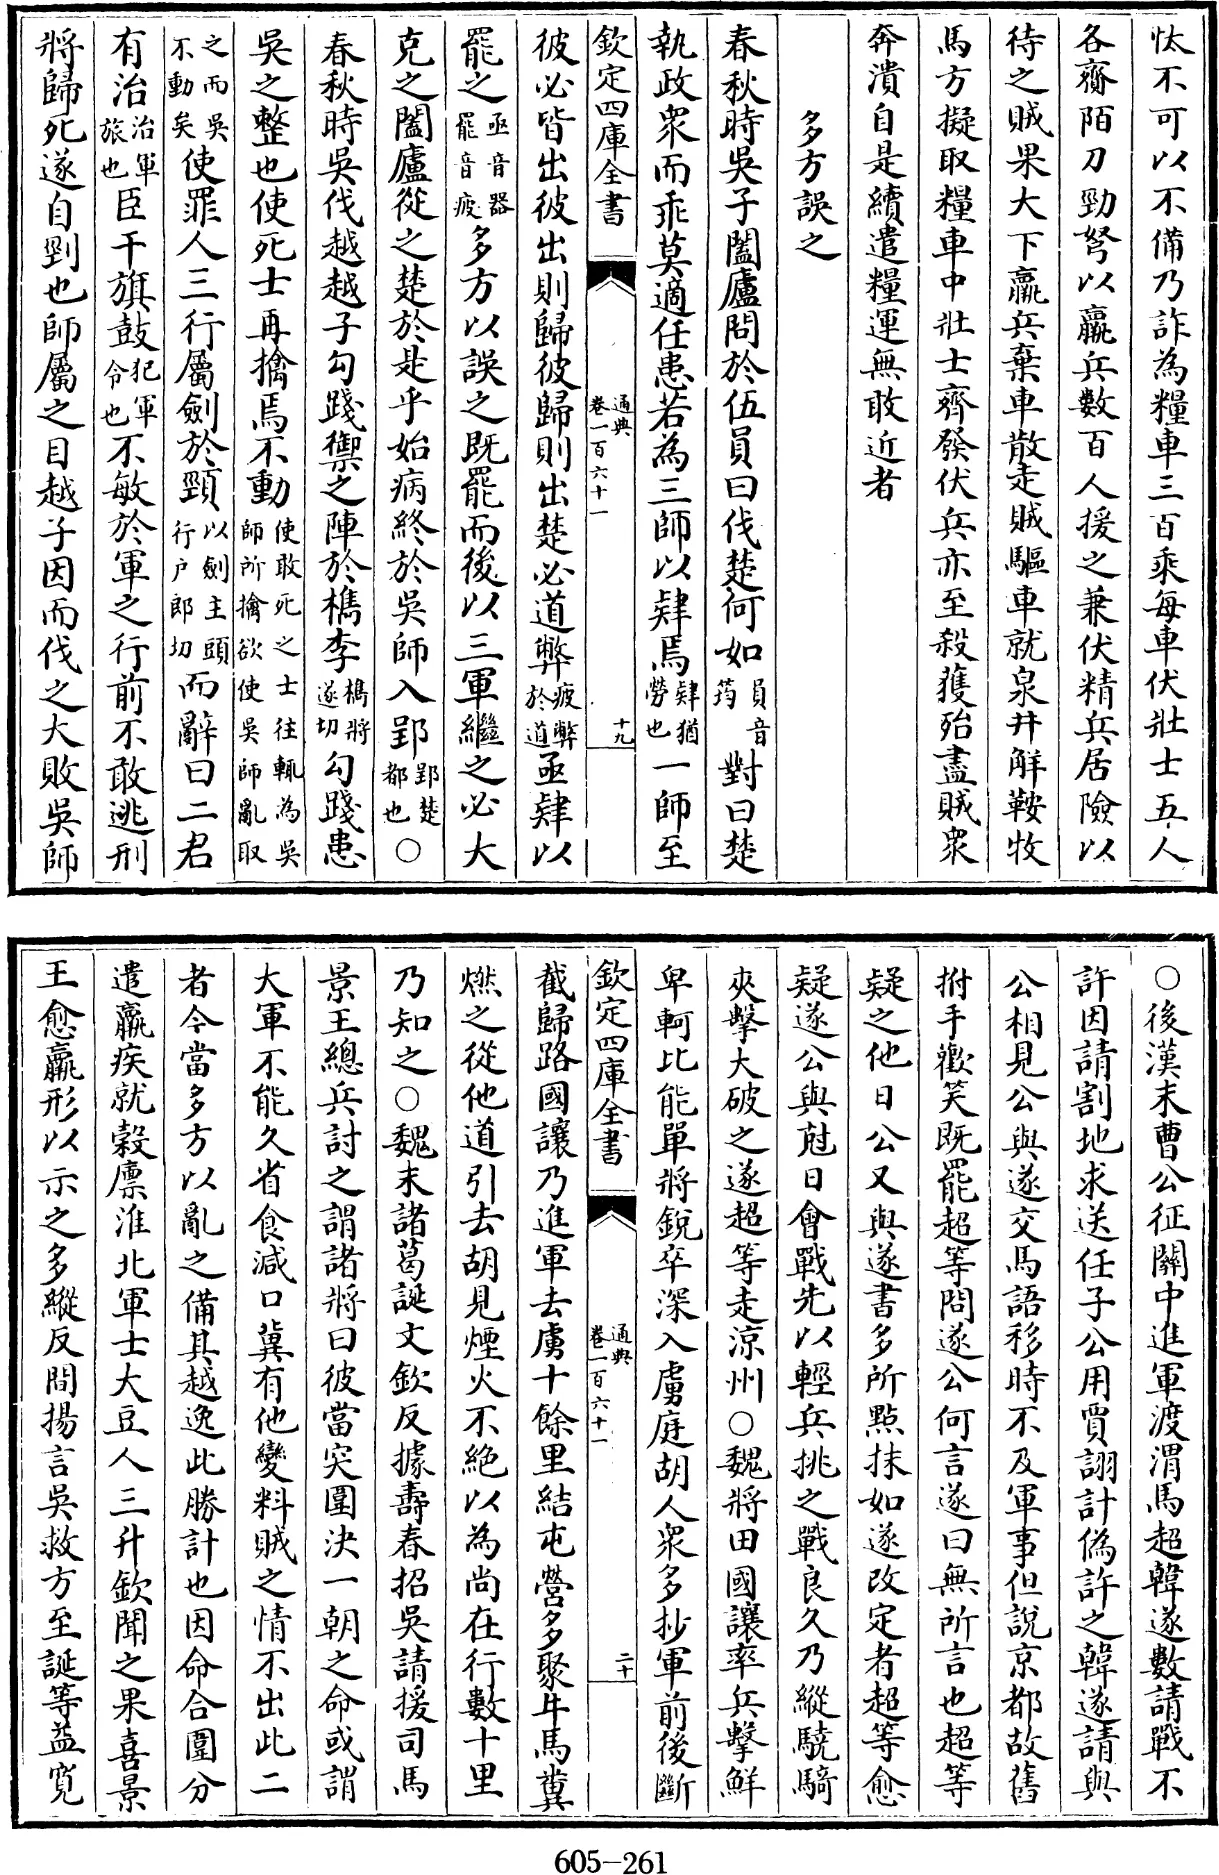 忲不可以不備乃詐為糧車三百乘每車伏壯士五人
各齎陌刀勁弩以羸兵數百人援之兼伏精兵居險以
待之賊果大下羸兵棄車散走賊驅車就泉井解鞍牧
馬方擬取糧車中壯士齊發伏兵亦至殺獲殆盡賊衆
奔潰自是續遣糧運無敢近者
多方誤之
春秋時吳子闔廬問於伍員曰伐楚何如員音筠對曰楚
執政衆而乖莫適任患若為三師以肄焉肄猶勞也一師至
欽定四庫全書
通典
卷一百六十一
十九
彼必皆出彼出則歸彼歸則出楚必道弊疲弊於道亟肄以
罷之亟音器罷音疲多方以誤之既罷而後以三軍繼之必大
克之闔廬從之楚於是乎始病終於吳師入郢郢楚都也○
春秋時吳伐越越子勾踐禦之陣於檇李檇將遂切勾踐患
吳之整也使死士再擒焉不動使敢死之士往輒為吳師所擒欲使吳師亂取
之而吳不動矣使罪人三行屬劍於頸以劍主頭行户郎切而辭曰二君
有治治軍旅也臣干旗鼓犯軍令也不敏於軍之行前不敢逃刑
將歸死遂自剄也師屬之目越子因而伐之大敗吳師
○後漢末曹公征關中進軍渡渭馬超韓遂數請戰不
許因請割地求送任子公用賈詡計偽許之韓遂請與
公相見公與遂交馬語移時不及軍事但說京都故舊
拊手歡笑既罷超等問遂公何言遂曰無所言也超等
疑之他日公又與遂書多所點抹如遂改定者超等愈
疑遂公與尅日會戰先以輕兵挑之戰良久乃縱驍騎
夾擊大破之遂超等走涼州○魏將田國讓率兵擊鮮
卑軻比能單將銳卒深入虜庭胡人衆多抄軍前後斷
欽定四庫全書
通典
卷一百六十一
二十
截歸路國讓乃進軍去虜十餘里結屯營多聚牛馬糞
燃之從他道引去胡見煙火不絕以為尚在行數十里
乃知之○魏末諸葛誕文欽反據壽春招吳請援司馬
景王總兵討之謂諸將曰彼當突圍決一朝之命或謂
大軍不能久省食減口冀有他變料賊之情不出此二
者今當多方以亂之備其越逸此勝計也因命合圍分
遣羸疾就穀廩淮北軍士大豆人三升欽聞之果喜景
王愈羸形以示之多縱反間揚言吳救方至誕等益寬
605-261